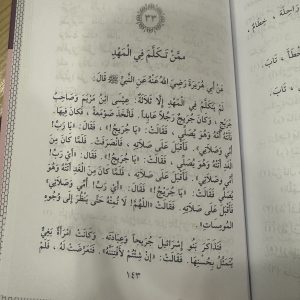 ٣٣
ممَّن تَكَلَّمَ فِي الْمَهْدِ
عَن أَبِي هُرَيْرَةَ رَضِيَ اللهُ عَنْهُ عَنِ النَّبِيِّ ﷺ قَالَ:
لَمْ يَتَكَلَّمْ فِي الْمَهْدِ إِلَّا ثَلَاثَةٌ: عِيسَى ابْنُ مَرْيَمَ وَصَاحِبُ
جُرَيْجٍ. وَكَانَ جُرَيْجٌ رَجُلًا عَابِدًا. فَاتَّخَذَ صَوْمَعَةً، فَكَانَ فِيهَا.
فَأَتَتْهُ أُمُّهُ وَهُوَ يُصَلِّي، فَقَالَتْ: «يَا جُرَيْجُ!»، فَقَالَ: «يَا رَبِّ!
أُمِّي وَصَلَاتِي». فَأَقْبَلَ عَلَى صَلَاتِهِ، فَانْصَرَفَتْ. فَلَمَّا كَانَ مِنَ
الْغَدِ أَتَتْهُ وَهُوَ يُصَلِّي، فَقَالَتْ: «يَا جُرَيْجُ!»، فَقَالَ: «أَيْ رَبِّ!
أُمِّي وَصَلَاتِي». فَأَقْبَلَ عَلَى صَلَاتِهِ. فَلَمَّا كَانَ مِنَ الْغَدِ أَتَتْهُ وَهُوَ
يُصَلِّي، فَقَالَتْ: «يَا جُرَيْجُ!» فَقَالَ: «أَيْ رَبِّ! أُمِّي وَصَلَاتِي»
فَأَقْبَلَ عَلَى صَلَاتِهِ. فَقَالَتْ «اللَّهُمَّ! لَا تُمِتْهُ حَتَّى يَنْظُرَ إِلَى وُجُوهِ
الْمُومِسَاتِ!»
فَتَذَاكَرَ بَنُو إِسْرَائِيلَ جُرَيْجاً وَعِبَادَتَه. وَكَانَتِ امْرَأَةٌ بَغِيٌّ
يُتَمَثَّلُ بِحُسْنِهَا. فَقَالَتْ: «إِنْ شِئْتُمْ لَأَفْتِنَنَّهُ». فَتَعَرَّضَتْ لَهُ. فَلَمْ
١٤٣
رَاحِلَة، خِطَامٌ،
تَابَ.
تَابَ.